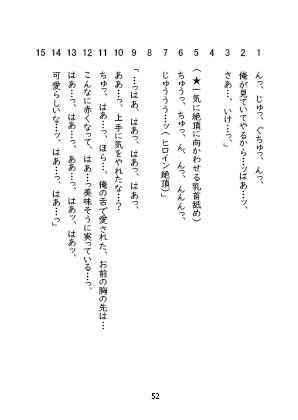 1 んっ、じゅっ、ぐちゅっ、んっ、
2 俺が見ていてやるから…ッはあ…ッ、
3 さあ…、いけ…っ。
4
5 (★一気に絶頂に向かわせる乳首舐め)
6 ちゅうっ、ちゅっ、ん、っ、んんんっ、
7 じゅうううう…ッ(ヒロイン絶頂)」
8
9 「…っはぁ、はぁっ、はぁっ、はぁっ、
10 ああ…っ、上手に気をやれたな…?
11 ちゅっ、はあ…っ、ほら…、俺の舌で愛された、お前の胸の先は…
12 こんなに赤くなって、はあ…っ美味そうに実っている…っ、
13 はあ…っ、はあ…っ、ああ…っ、はあッ、はあッ、
14 可愛らしいな…ッ、はあ…っ、はあ…っ」
15
52